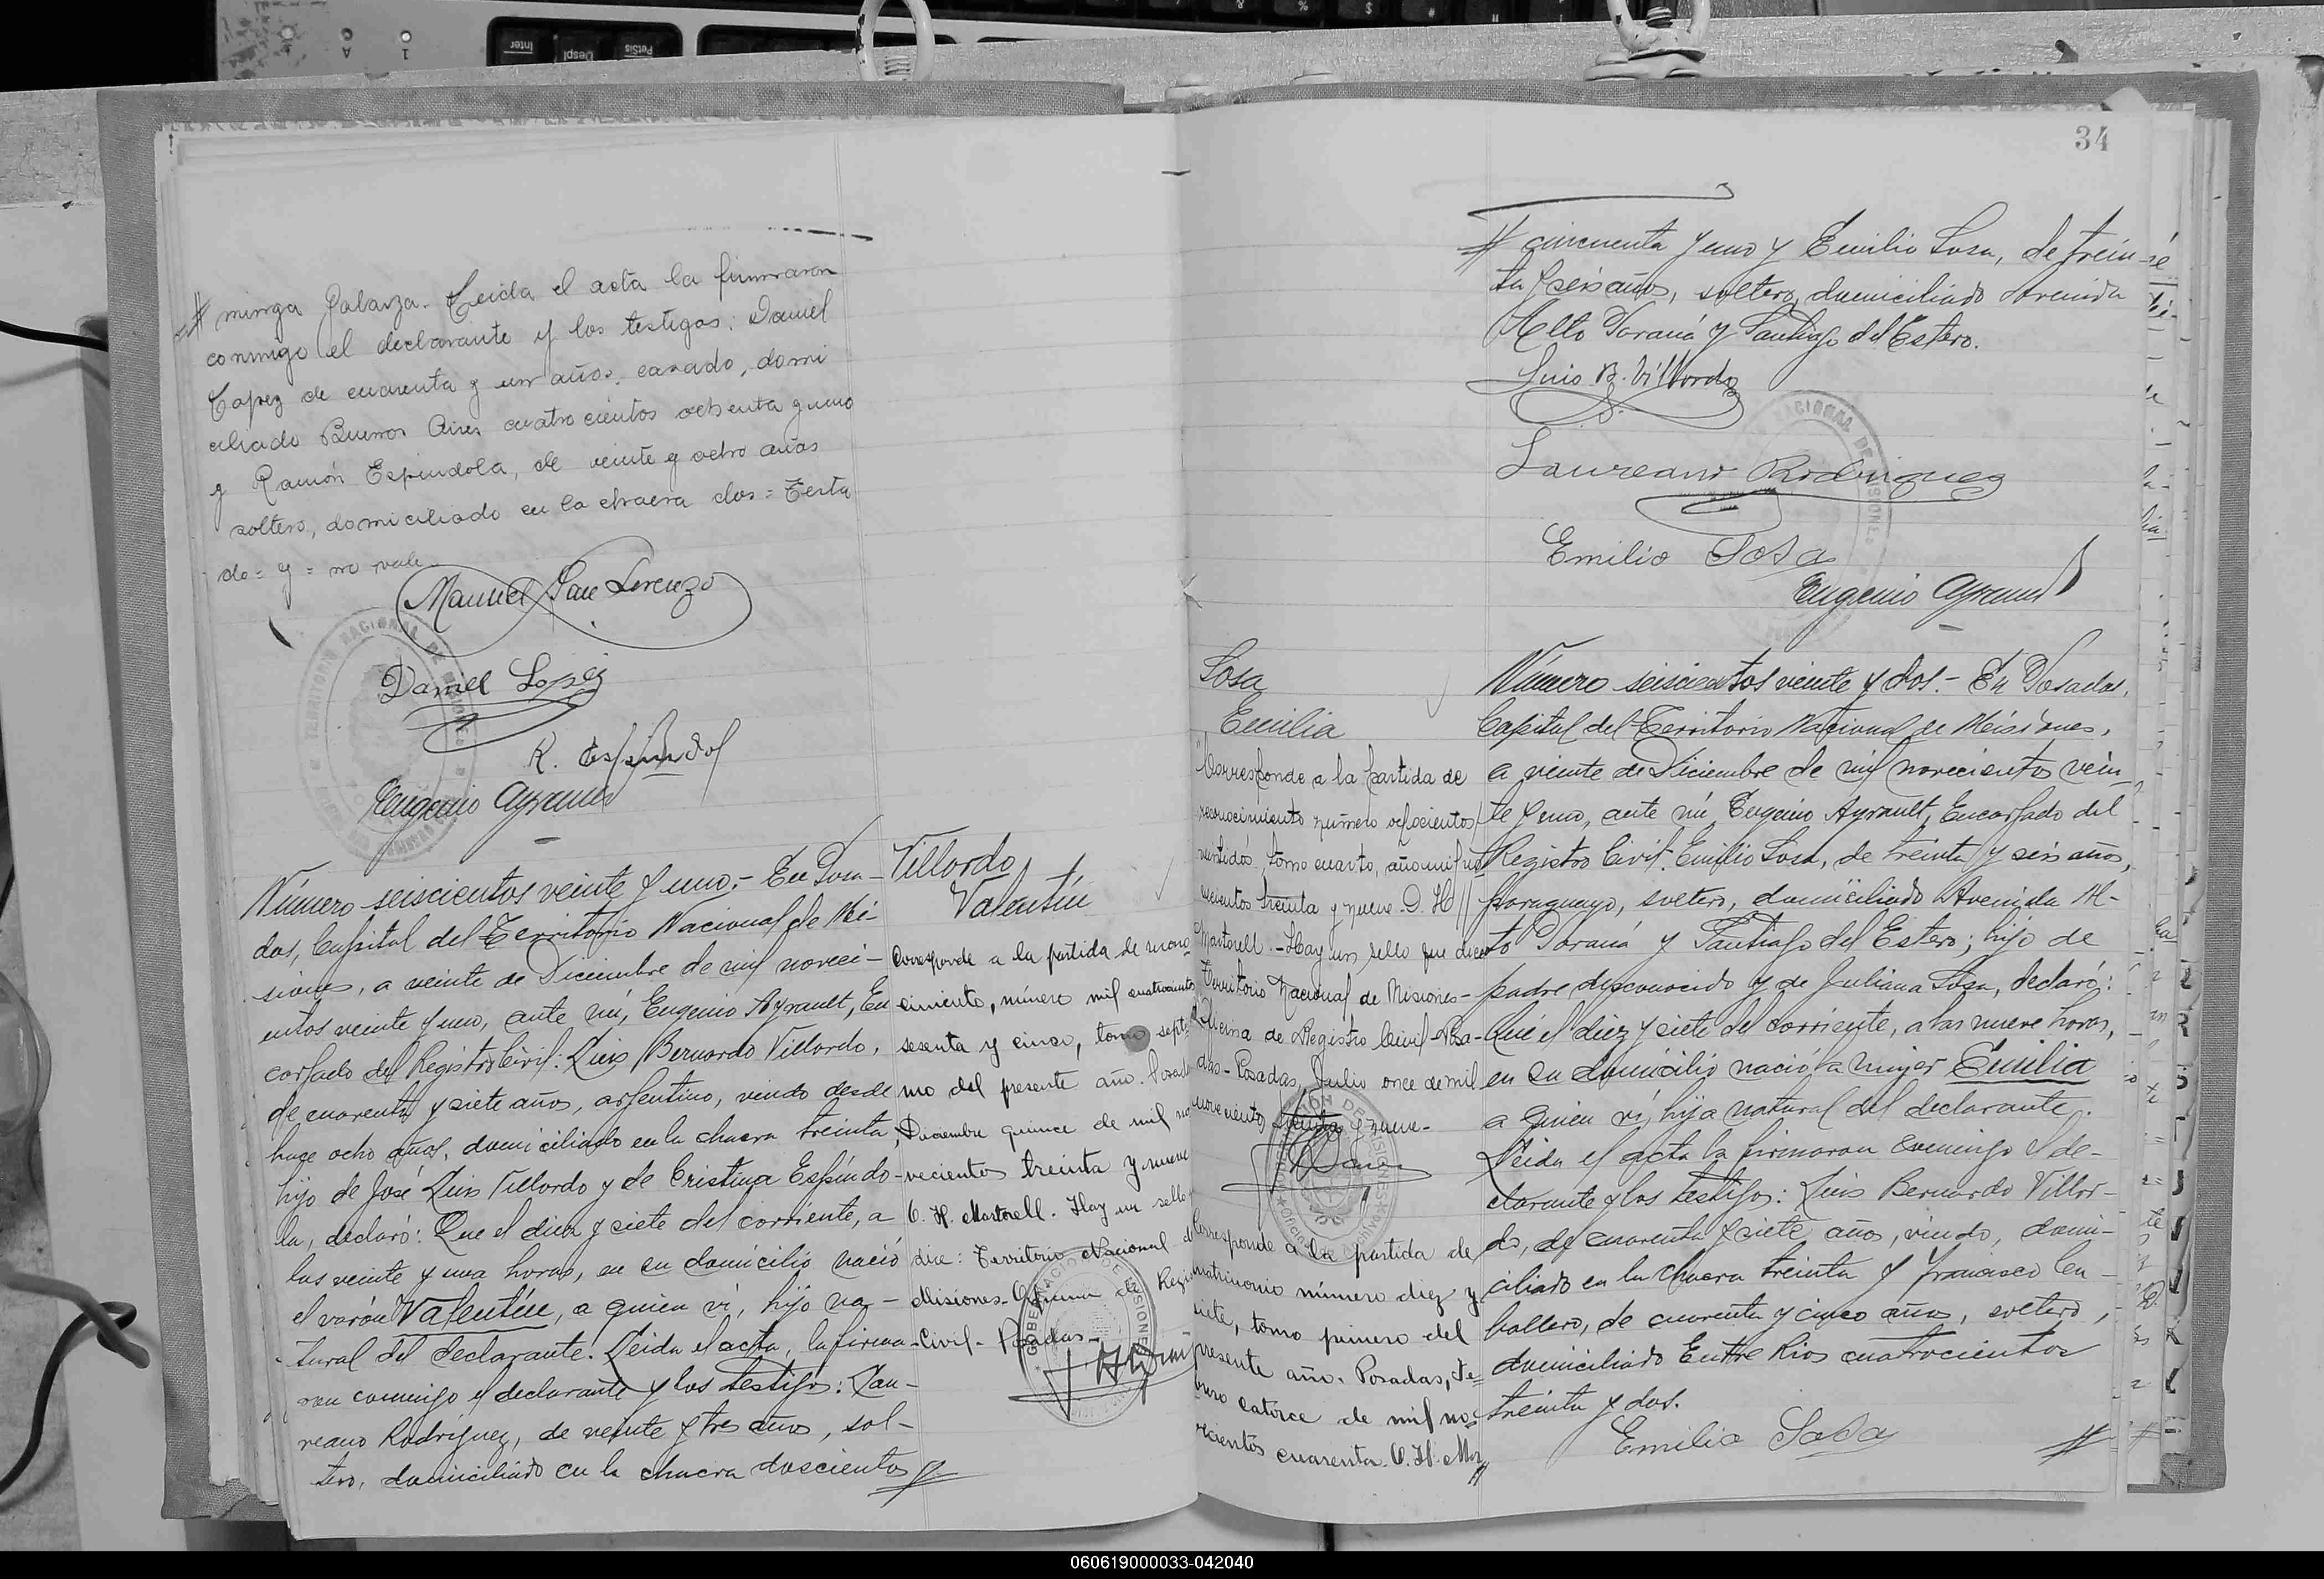 # minga Galarza. Leida el acta la firmaron
conmigo el declarante y los testigos: Daniel
Lopez de cuarenta y un años, casado, domi
ciliado Buenos Aires cuatrocientos ochenta y uno
y Ramón Espindola, de veinte y ocho años
soltero, domiciliado en la chacra dos = Testa
do = y = no vale.
Manuel San Lorenzo
Daniel Lopez
R. Espindol
Eugenio Ayrault
Número seiscientos veinte y uno.- En Posa-
das, Capital del Territorio Nacional de Mi-
siones, a veinte de Diciembre de mil noveci-
entos veinte y uno, ante mi, Eugenio Ayrault, En
cargado del Registro Civil: Luis Bernardo Villordo,
de cuarenta y siete años, argentino, viudo desde
hace ocho años, domiciliado en la chacra treinta,
hijo de José Luis Villordo y de Cristina Espíndo-
la, declaró: Que el diez y siete del corriente, a
las veinte y una horas, en su domicilio nació
el varón Valentín, a quien vi, hijo na-
tural del declarante. Leida el acta, la firma-
ron conmigo el declarante y los testigos: Lau-
reano Rodríguez, de veinte y tres años, sol-
tero, domiciliado en la chacra doscientos #
Villordo
Valentín
Corresponde a la partida de recono-
cimiento, número mil cuatrocientos
sesenta y cinco, tomo septi
mo del presente año. Posadas
Diciembre quince de mil no
vecientos treinta y nueve
O. H. Martorell. Hay un sello
dice: Territorio Nacional de
Misiones- Oficina de Regis
Civil- Posadas-
34
# cincuenta y uno y Emilio Sosa, de trein-
ta y seis años, soltero, domiciliado Avenida
Alto Paraná y Santiago del Estero.
Luis B. Villordo
Laureano Rodriguez
Emilio Sosa
Eugenio Ayrault
Sosa
Emilia
Corresponde a la partida de
reconocimiento número ochocientos
veintidós, tomo cuarto, año mil no
vecientos treinta y nueve. O. H //
Martorell.- Hay un sello que dice
Territorio Nacional de Misiones-
Oficina de Registro Civil-Posa-
das- Posadas, Julio once de mil
novecientos treinta y nueve-
Corresponde a la partida de
matrimonio número diez y
siete, tomo primero del
presente año. Posadas, Fe=
brero catorce de mil no=
vecientos cuarenta. O. H. Mar
Número seiscientos veinte y dos.- En Posadas,
Capital del Territorio Nacional de Misiones,
a veinte de Diciembre de mil novecientos vein-
te y uno, ante mi, Eugenio Ayrault, Encargado del
Registro Civil: Emilio Sosa, de treinta y seis años,
paraguayo, soltero, domiciliado Avenida Al-
to Paraná y Santiago del Estero; hijo de
padre desconocido y de Juliana Sosa, declaró:
Que el diez y siete del corriente, a las nueve horas,
en su domicilio nació la mujer Emilia
a quien vi, hija natural del declarante.
Leida el acta la firmaron conmigo el de-
clarante y los testigos: Luis Bernardo Villor-
do, de cuarenta y siete años, viudo, domi-
ciliado en la chacra treinta y Francisco Ca-
ballero, de cuarenta y cinco años, soltero,
domiciliado Entre Rios cuatrocientos
treinta y dos.
Emilio Sosa
#
060619000033-042040